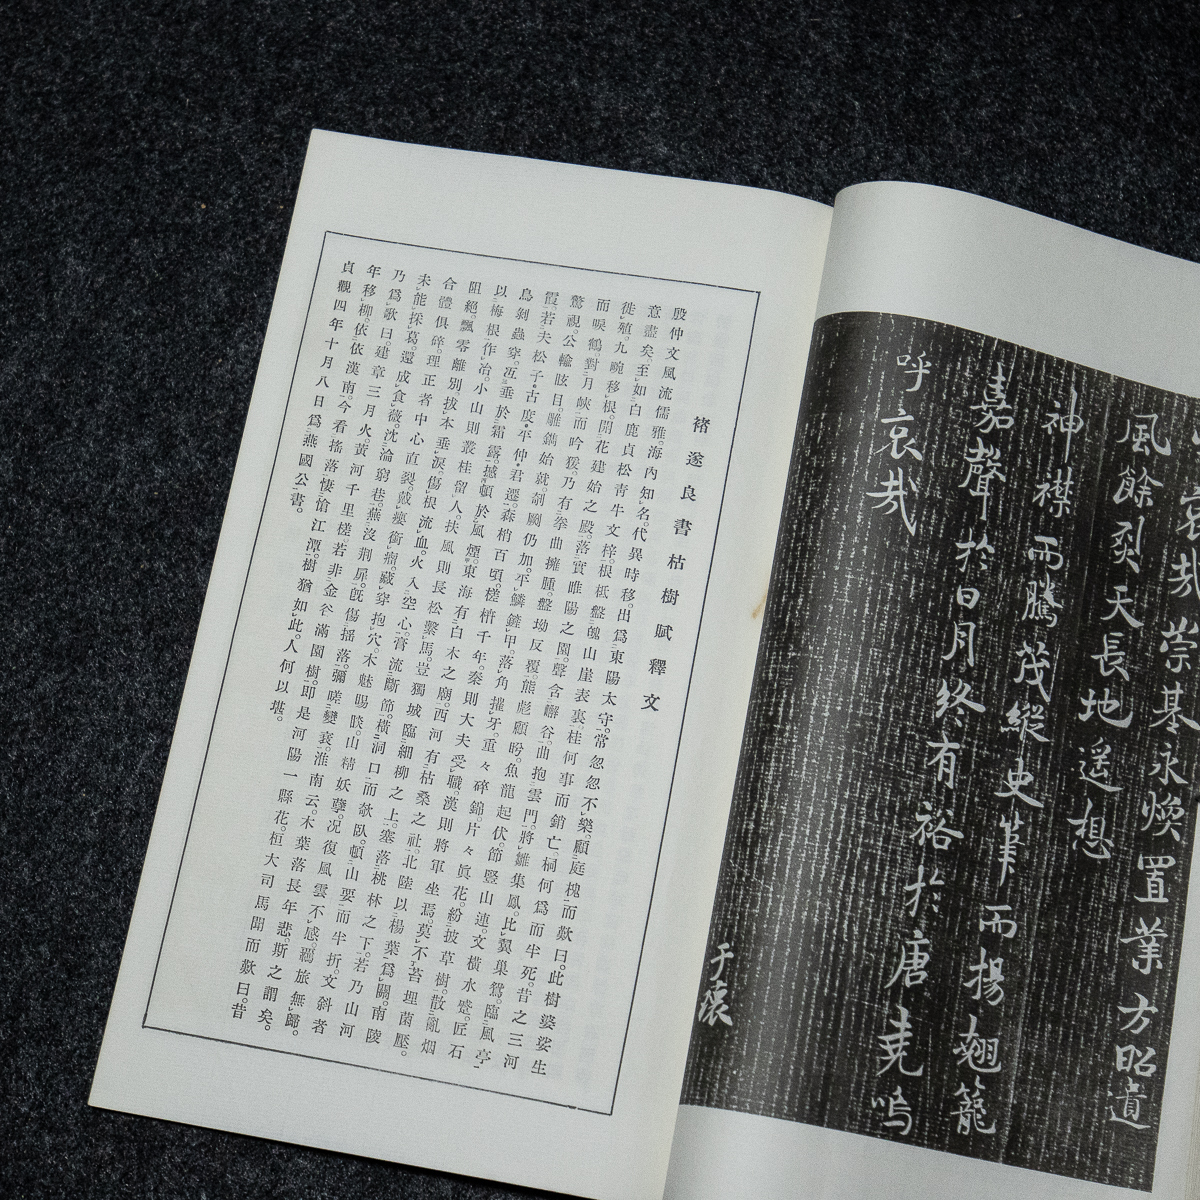 哀哉崇基永煥置業方昭遺
風餘烈天長地遥想
神襟而騰茂縱史筆而揚翹籠
嘉聲於日月終有裕於唐堯嗚
呼哀哉
于瓌
褚遂良書枯樹賦釋文
殷仲文風流儒雅。海內知名。代異時移。出爲東陽太守。常忽忽不樂。顧庭槐而歎曰。此樹婆娑生
意盡矣。至如白鹿貞松青牛文梓。根柢盤魄山崖表裏。桂何事而銷亡。桐何爲而半死。昔之三河
徙殖。九畹移根。開花建始之殿。落實睢陽之園。聲含嶰谷。曲抱雲門。將雛集鳳。比翼巢鴛。臨風亭
而唳鶴。對月峽而吟猨。乃有拳曲擁腫。盤坳反覆。熊彪顧盼。魚龍起伏。節豎山連。文橫水蹙。匠石
驚視。公輸眩目。雕鐫始就剞劂仍加。平鱗鏟甲。落角摧牙。重々碎錦。片々眞花。紛披草樹。散亂烟
霞。若夫松子。古度。平仲。君遷。森梢百頃。槎枿千年。秦則大夫受職。漢則將軍坐焉。莫不苔埋菌壓。
鳥剝蟲穿。冱垂於霜露。撼頓於風煙。東海有白木之廟。西河有枯桑之社。北陸以楊葉爲關。南陵
以梅根作冶。小山則叢桂留人。扶風則長松繫馬。豈獨城臨細柳之上。塞落桃林之下。若乃山河
阻絕。飄零離別。拔本垂淚。傷根流血。火入空心。膏流斷節。橫洞口而欹臥。頓山要而半折。文斜者
合體俱碎。理正者中心直裂。戴癭銜瘤。藏穿抱穴。木魅睗睒。山精妖孽。况復風雲不感。羈旅無歸。
未能採葛。還成食薇。沈淪窮巷。蕪沒荆扉。旣傷搖落。彌嗟變衰。淮南云。木葉落長年悲。斯之謂矣。
乃爲歌曰。建章三月火。黃河千里槎。若非金谷滿園樹。即是河陽一縣花。桓大司馬聞而歎曰。昔
年移柳。依依漢南。今看搖落悽愴江潭。樹猶如此。人何以堪。
貞觀四年十月八日爲燕國公書。